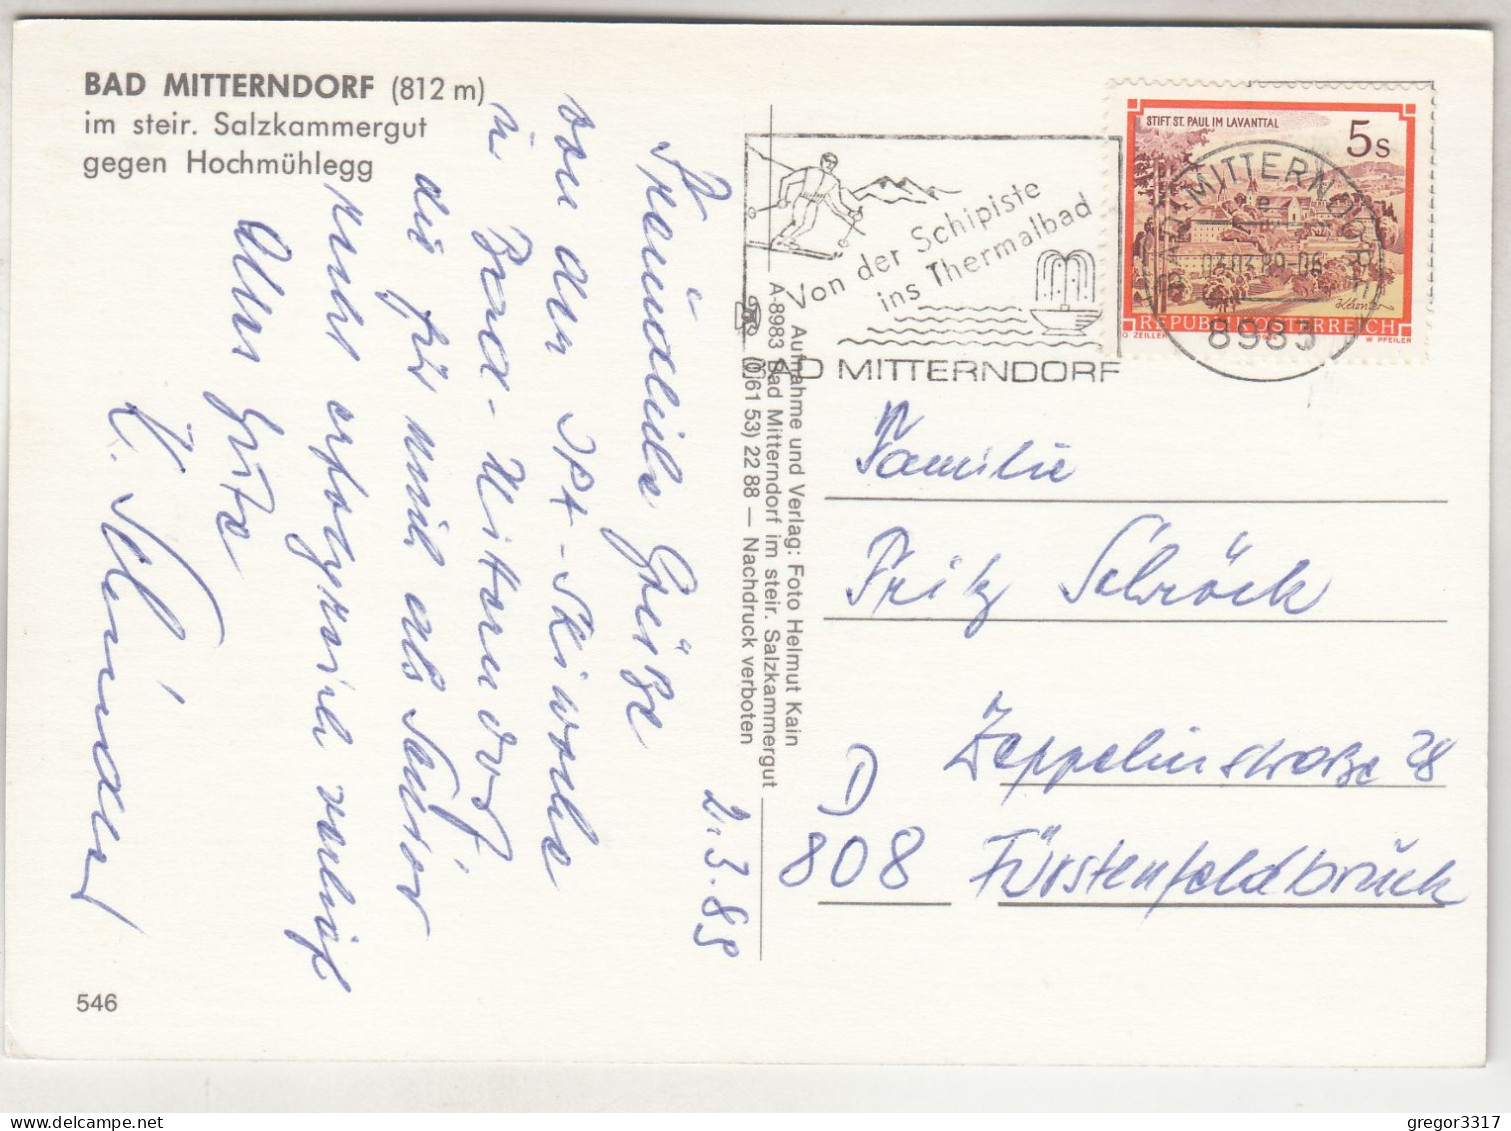 BAD MITTERNDORF (812 m)
im steir. Salzkammergut
gegen Hochmühlegg
Freundliche Grüße
von der Ist-Skiwoche
in Bad-Mitterndorf
die für mich als Senior
recht erfolgreich verlief
Alles Gute
2.3.89
546
Aufnahme und Verlag: Foto Helmut Kain
A-8983 Bad Mitterndorf im steir. Salzkammergut
(0 61 53) 22 88 — Nachdruck verboten
Von der Schipiste
ins Thermalbad
BAD MITTERNDORF
STIFT ST. PAUL IM LAVANTTAL
5 S
REPUBLIK ÖSTERREICH
O ZEILLER
W PFEILER
BAD MITTERNDORF
03.03.89-06
8983
Familie
Fritz Schröck
Zeppelinstraße 28
D
808 Fürstenfeldbruck
gregor3317